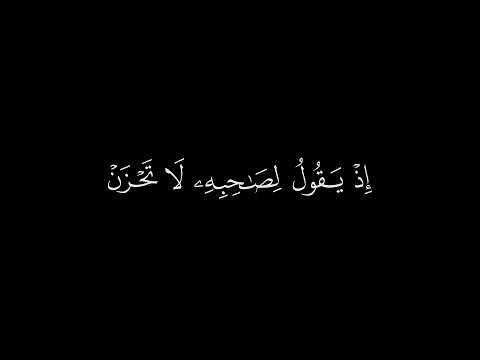 إِذْ يَقُولُ لِصَـٰحِبِهِۦ لَا تَحْزَنْ